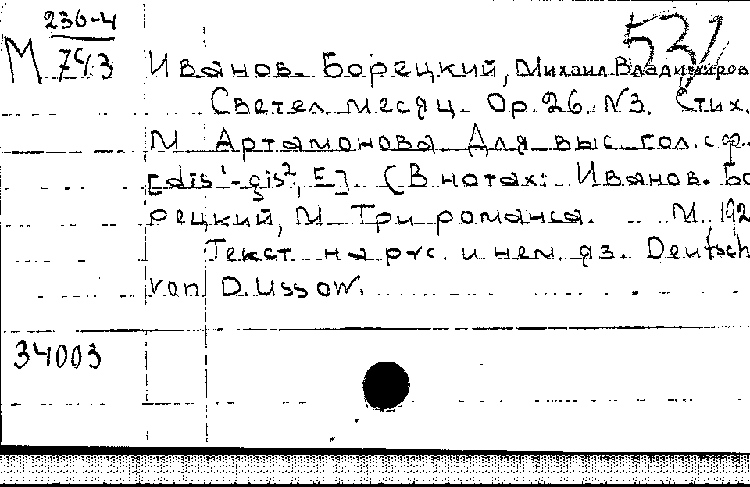 236-4
M 743
531
Иванов-Борецкий, Михаил Владимиров
Светел месяц. Op. 26. N3. Стих.
М Артамонова. Для выс. гол. с ф.
[dis¹-gis², E]. (В нотах: Иванов-Бо
рецкий, М. Три романса. М., 192
Текст на рус. и нем. яз. Deutsch
von D. Ussow.
34003